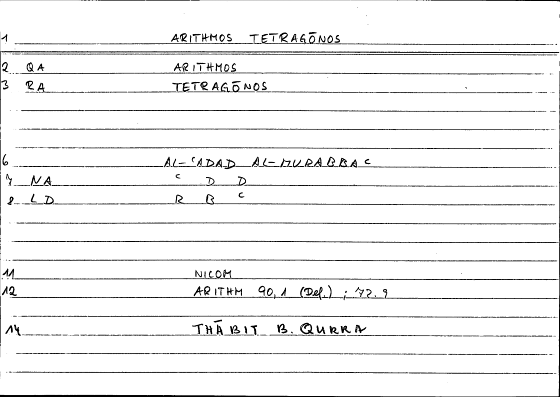 1 ARITHMOS TETRAGŌNOS
2 QA ARITHMOS
3 RA TETRAGŌNOS
6 AL-ʿADAD AL-MURABBAʿ
7 NA ʿ D D
8 LD R B ʿ
11 NICOM
12 ARITHM 90,1 (Def.) ; 77.9
14 THĀBIT B. QURRA